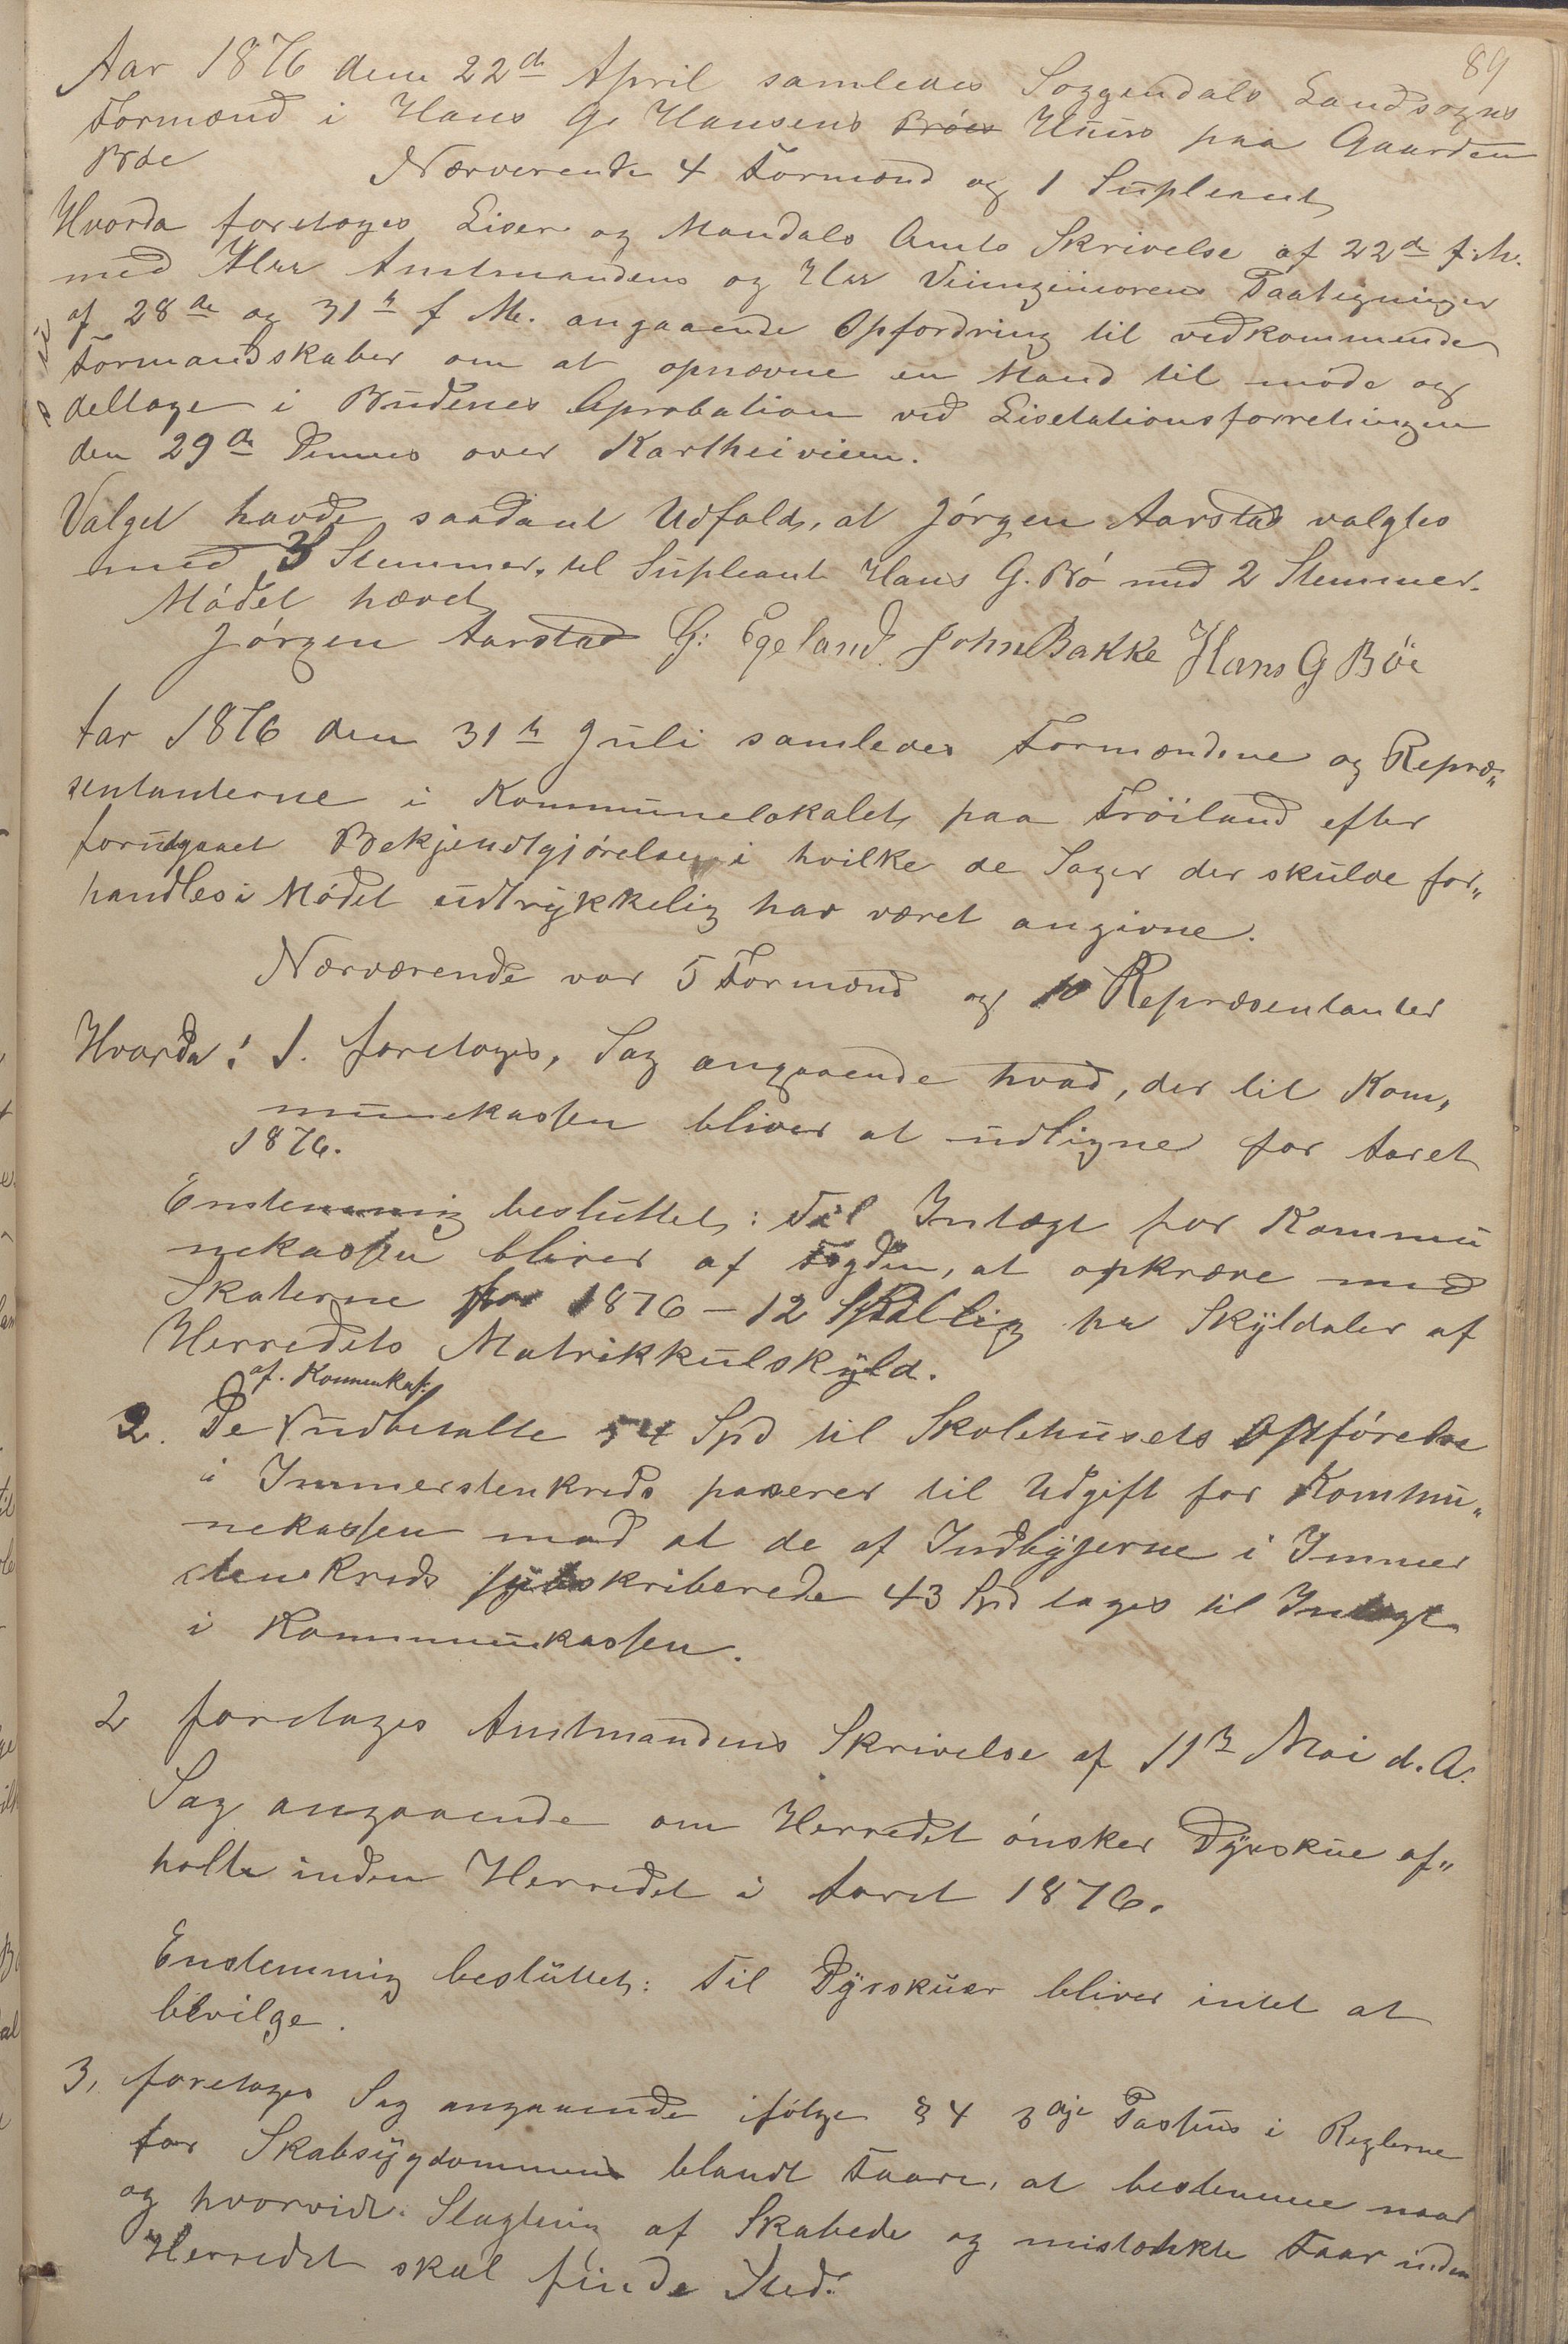 89
Aar 1876 den 22de April samledes Soggendals Landsogns
Formænd i Hans G. Hansens Bröes Huus paa Gaarden
Bröe Nærverende 4 Formænd og 1 Supleant
Hvorda foretoges Lister og Mandals Amts Skrivelse af 22de f. M.
med Herr Amtmandens og Herr Veiingeniörens Paategninger
af 28de og 31te f. M. angaaende Opfordring til vedkommende
Formandskaber om at opnævne en Mand til möde og
deltage i Budenes Aprobation ved Lisetationsforretningen
den 29de Dennes over Kartheiveien.
Valget havde saadant Udfald, at Jörgen Aarstad valgtes
med 3 Stemmer, til Supleant Hans G. Bö med 2 Stemmer.
Mödet hævet
Jörgen Aarstad G: Egeland John Bakke Hans G Böe
Aar 1876 den 31te Juli samledes Formændene og Repræ„
sentanterne i Kommunelokalet paa Fröiland efter
forudgaaet Bekjendtgjörelse, i hvilke de Sager der skulde for„
handles i Mödet udtrykkelig har været angivne.
Nærværende var 5 Formænd og 10 Repræsentanter
Hvorda: 1. foretoges, Sag angaaende hvad, der til Kom„
munekassen bliver at udligne for Aaret
1876.
Enstemmig besluttet: Til Intægt for Kommu
nekassen bliver af Fogden, at opkræve med
Skaterne for 1876 – 12 Skilling pr Skyldaler af
Herredets Matrikkulskyld.
af. Kommunekas:
2. De udbetalte 54 Spd til Skolehusets Opförelse
i Immerstenkreds paserer til Udgift for Kommu„
nekassen mod at de af Indbyserne i Immer
stenkreds subskriberede 43 Spd tages til Intægt
i Kommunekassen.
2 foretoges Amtmandens Skrivelse af 11te Mai d. A.
Sag angaaende om Herredet önsker Dyrskue af„
holte inden Herredet i Aaret 1876.
Enstemmig besluttet: Til Dyrskuer bliver intet at
bevilge.
3, foretoges Sag angaaende ifölge § 4 3die Passus i Reglerne
for Skabsygdommen blandt Faare, at bestemme naar
og hvorvidt Slagtning af Skabede og mistænkte Faar inden
Herredet skal finde Sted.